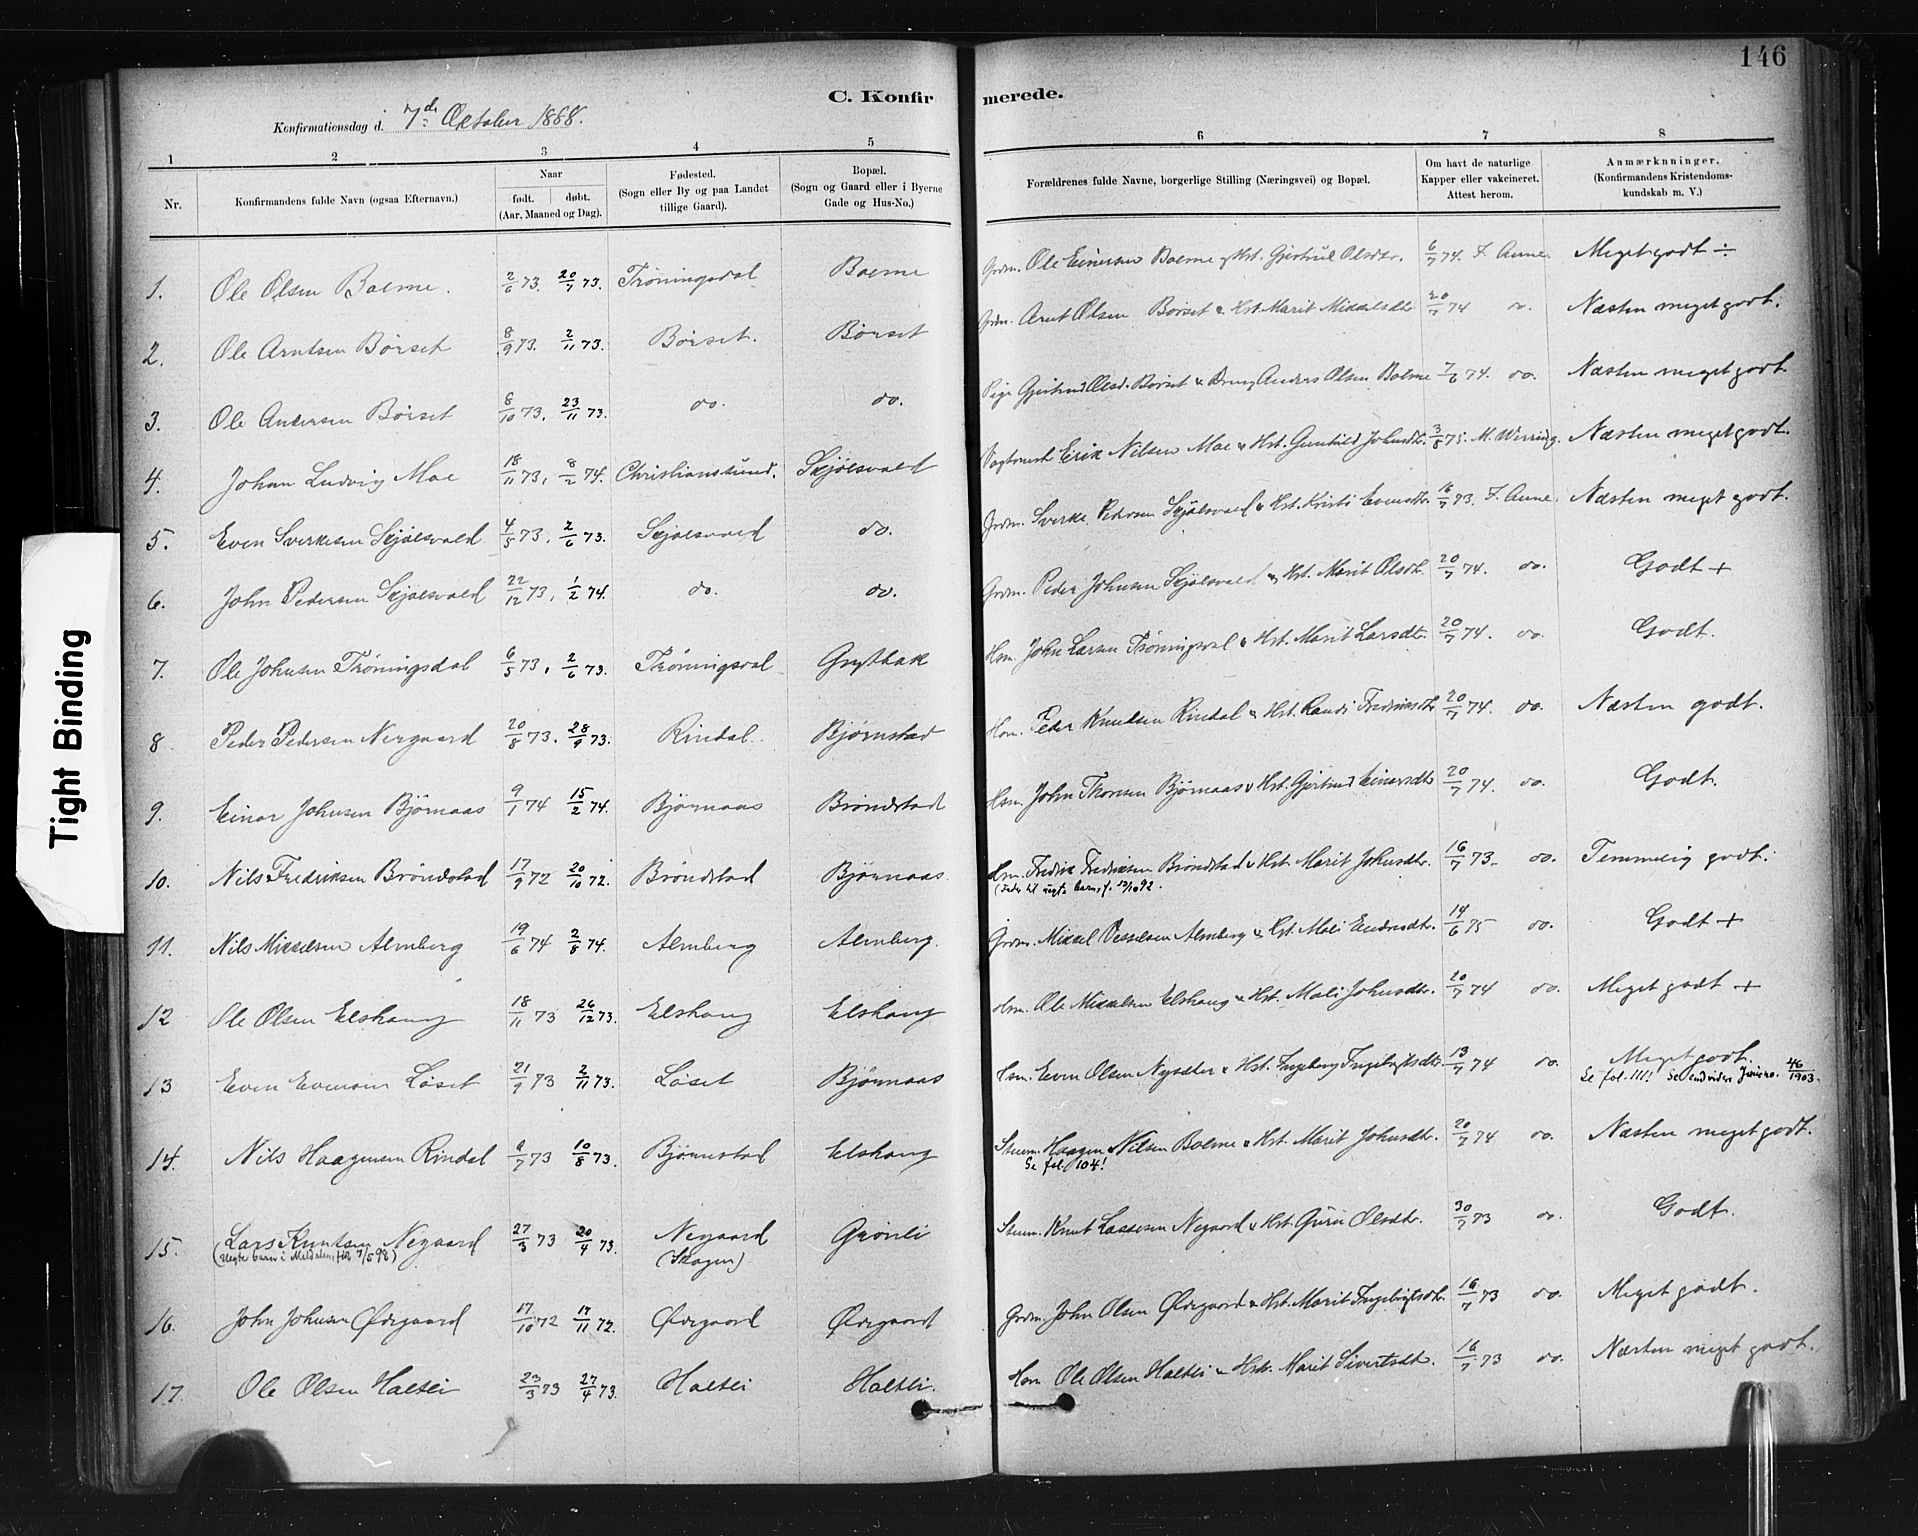 146
C. Konfirmerede.
Konfirmationsdag d. 7de Oktober 1888.
1 2 3 4 5 6 7 8
Nr. Konfirmandens fulde Navn (ogsaa Efternavn.) Naar født. døbt. (Aar, Maaned og Dag). Fødested. (Sogn eller By og paa Landet tillige Gaard). Bopæl. (Sogn og Gaard eller i Byerne Gade og Hus-No.) Forældrenes fulde Navne, borgerlige Stilling (Næringsvei) og Bopæl. Om havt de naturlige Kapper eller vakcineret. Attest herom. Anmærknninger. (Konfirmandens Kristendomskundskab m. V.)
1. Ole Olsen Bolme. 2/6 73. 20/7 73. Trøningsdal Bolme Grdm. Ole Einersen Bolme og Hst. Gjertrud Olsdtr. 6/7 74. F. Aune. Meget godt ÷
2. Ole Arntsen Børset 8/9 73. 2/11 73. Børset. Børset Grdm. Arnt Olsen Børset & Hst. Marit Mikkelsdtr. 20/7 74 do. Næsten meget godt.
3. Ole Andersen Børset 8/10 73. 23/11 73. do. do. Pige Gjertrud Olsd. Børset & Dreng Anders Olsen Bolme 7/6 74. do. Næsten meget godt
4. Johan Ludvig Moe 18/11 73. 8/2 74. Christianssund. Skjølsvold Erik Nilsen Moe & Hst. Gunhild Johnsdtr. 3/8 75. M. Werring. Næsten meget godt.
5. Even Sverkesen Skjølsvold 4/5 73. 2/6 73. Skjølsvold do. Grdm. Sverke Pedersen Skjølsvold & Hst. Kristi Evensdtr. 16/7 73. F. Aune. Næsten meget godt.
6. John Pedersen Skjølsvold 22/12 73. 1/2 74. do. do. Grdm. Peder Johnsen Skjølsvold & Hst. Marit Olsdtr. 20/7 74. do. Godt +
7. Ole Johnsen Trøningsdal 6/5 73. 2/6 73. Trøningsdal Grytbak Hsm. John Larsen Trøningsdal & Hst. Marit Larsdtr. 20/7 74. do. Godt.
8. Peder Pedersen Nergaard 20/8 73. 28/9 73. Rindal. Bjørnstad Hsm. Peder Knudsen Rindal & Hst. Randi Fredriksdtr. 20/7 74. do. Næsten godt.
9. Einar Johnsen Bjørnaas 9/1 74 15/2 74. Bjørnaas Brøndstad Hsm. John Thoresen Bjørnaas & Hst. Gjertrud Einarsdtr. 20/7 74. do. Godt.
10. Nils Fredriksen Brøndstad 17/9 72 20/10 72. Brøndstad Bjørnaas. Hsm. Fredrik Fredriksen Brøndstad & Hst. Marit Johnsdtr. 16/7 73. do. Temmelig godt.
(Fader til uægte barn, f. 13/10 92.
11. Nils Mikkelsen Almberg 19/6 74 2/8 74. Almberg Almberg. Grdm. Mikkel Almberg & Hst. Mali Endresdtr. 14/6 75 do. Godt +
12 Ole Olsen Elshaug 18/11 73 26/12 73. Elshaug Elshaug Hsm. Ole Mikkelsen Elshaug & Hst. Mali Johnsdtr. 20/7 74 do. Meget godt +
13 Even Evensen Løset 21/9 73 2/11 73. Løset Bjørnaas Hsm. Even Olsen & Hst. Ingeborg Ingebrigtsdtr. 13/7 74 do. Meget godt.
Se fol. 111! Se endvidere 46/1903.
14. Nils Haagensen Rindal 6/7 73 10/8 73. Bjørnstad Elshaug Haagen Nilsen Bolme & Hst. Marit Johnsdtr. 20/7 74 do. Næsten meget godt.
Se fol. 104!
15. Lars Knutsen Negaard 27/3 73 20/4 73. Negaard (Skogen) Grønli Knut Lassesen Negaard & Hst. Guru Olsdtr. 30/7 73 do. Godt.
(Uægte barn i Meldalen, født 7/5 98)
16. John Johnsen Ødegaard 17/10 72 17/11 72. Ødegaard Ødegaard Grdm. John Olsen Ødegaard & Hst. Marit Ingebrigtsdtr. 16/7 73 do. Meget godt.
17. Ole Olsen Holtli 23/3 73 27/4 73. Holtli Holtli. Hsm Ole Olsen Holtli & Hst. Marit Sivertsdtr. 16/7 73 do. Næsten meget godt.
Tight Binding